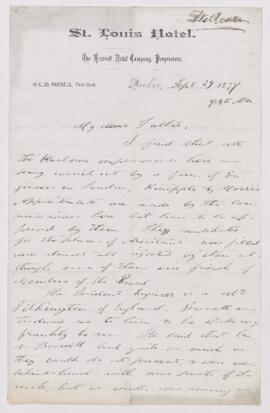 St. Louis Hotel.
The Russell Hotel Company, Proprietors.
WILLIS RUSSELL, President.
Quebec, Sept. 29 1877
9.45 AM
My dear Father,
I find that all
the Harbour improvements here are
being carried out by a firm of En-
gineers in London, Kinipple & Morris
Appointments are made by the Com-
missioners here but have to be ap-
proved by them. The candidates
for the place of Assistant now filled
were almost all rejected by them al-
though some of them were friends of
Members of the Board.
The Resident Engineer is a Mr
Pilkington of England,
troduced me to him & he spoke very
frankly to me. He said that he
& Boswell had quite as much as
they could do at present, & even were
behind-hand with some parts of the
work, but as winter was coming on